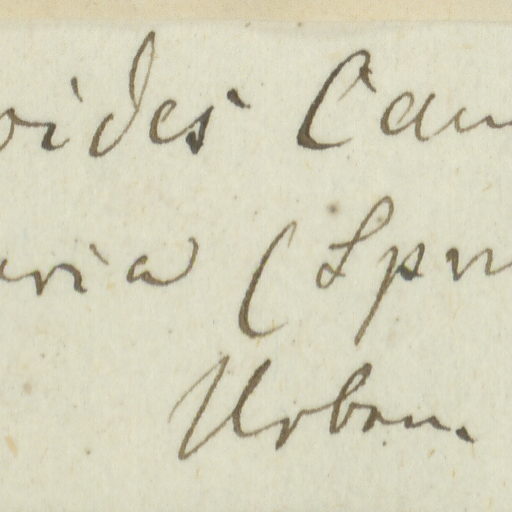 oides Cam
aria (Spr
Urban.